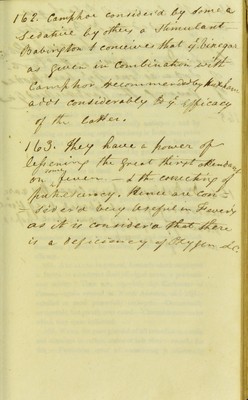 162. Camphor consider'd by some a
Sedative by others a Stimulant
Babington conceives that ye Vinegar
as given in Combination with
Camphor recommended by Huxham
adds considerably to ye efficacy
of the latter.
163. They have a power of
lessening the Great thirst attendant
on some fevers & the correcting of
putrescency. Hence are con-
sidered very useful in Fevers
as it is considered that there
is a deficiency of Oxygen &c.